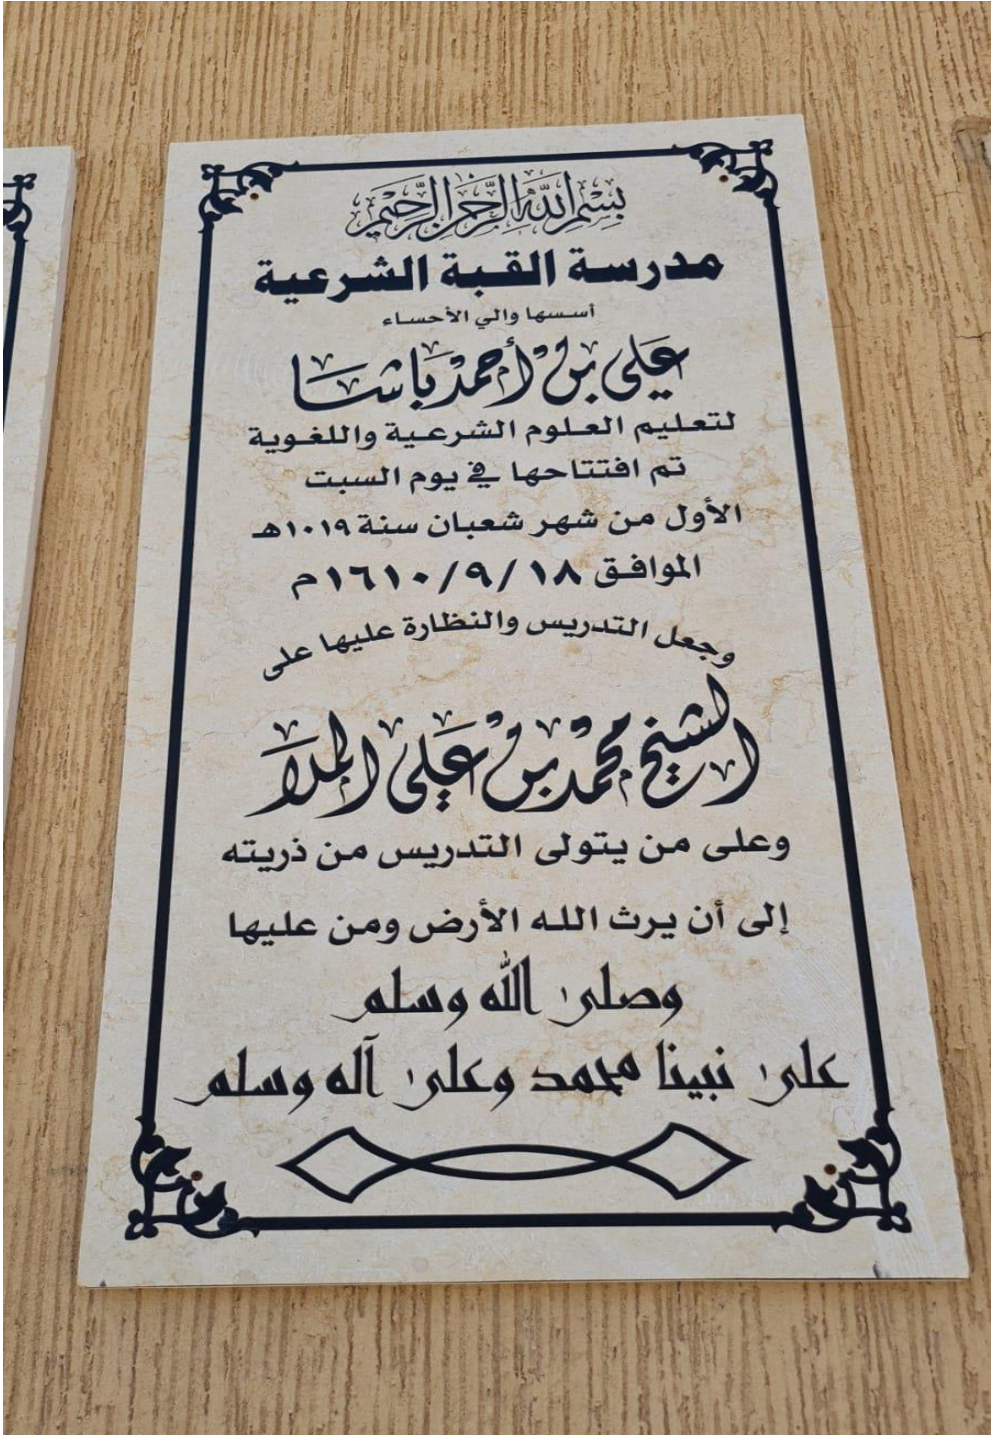 بِسْمِ اللَّهِ الرَّحْمَنِ الرَّحِيمِ
مدرسة القبة الشرعية
أسسها والي الأحساء
علي بن أحمد باشا
لتعليم العلوم الشرعية واللغوية
تم افتتاحها في يوم السبت
الأول من شهر شعبان سنة ١٠١٩هـ
الموافق ١٦١٠/٩/١٨م
وجعل التدريس والنظارة عليها على
الشيخ محمد بن علي الملا
وعلى من يتولى التدريس من ذريته
إلى أن يرث الله الأرض ومن عليها
وصلى الله وسلم
على نبينا محمد وعلى آله وسلم